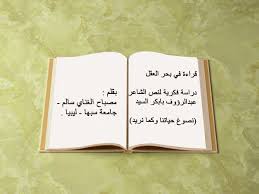 قراءة في بحر العقل
دراسة فكرية لنص الشاعر
عبدالرؤوف بابكر السيد
(نصوغ حياتنا وكما نريد)
بقلم :
مصباح الغناي سالم -
جامعة سبها - ليبيا .